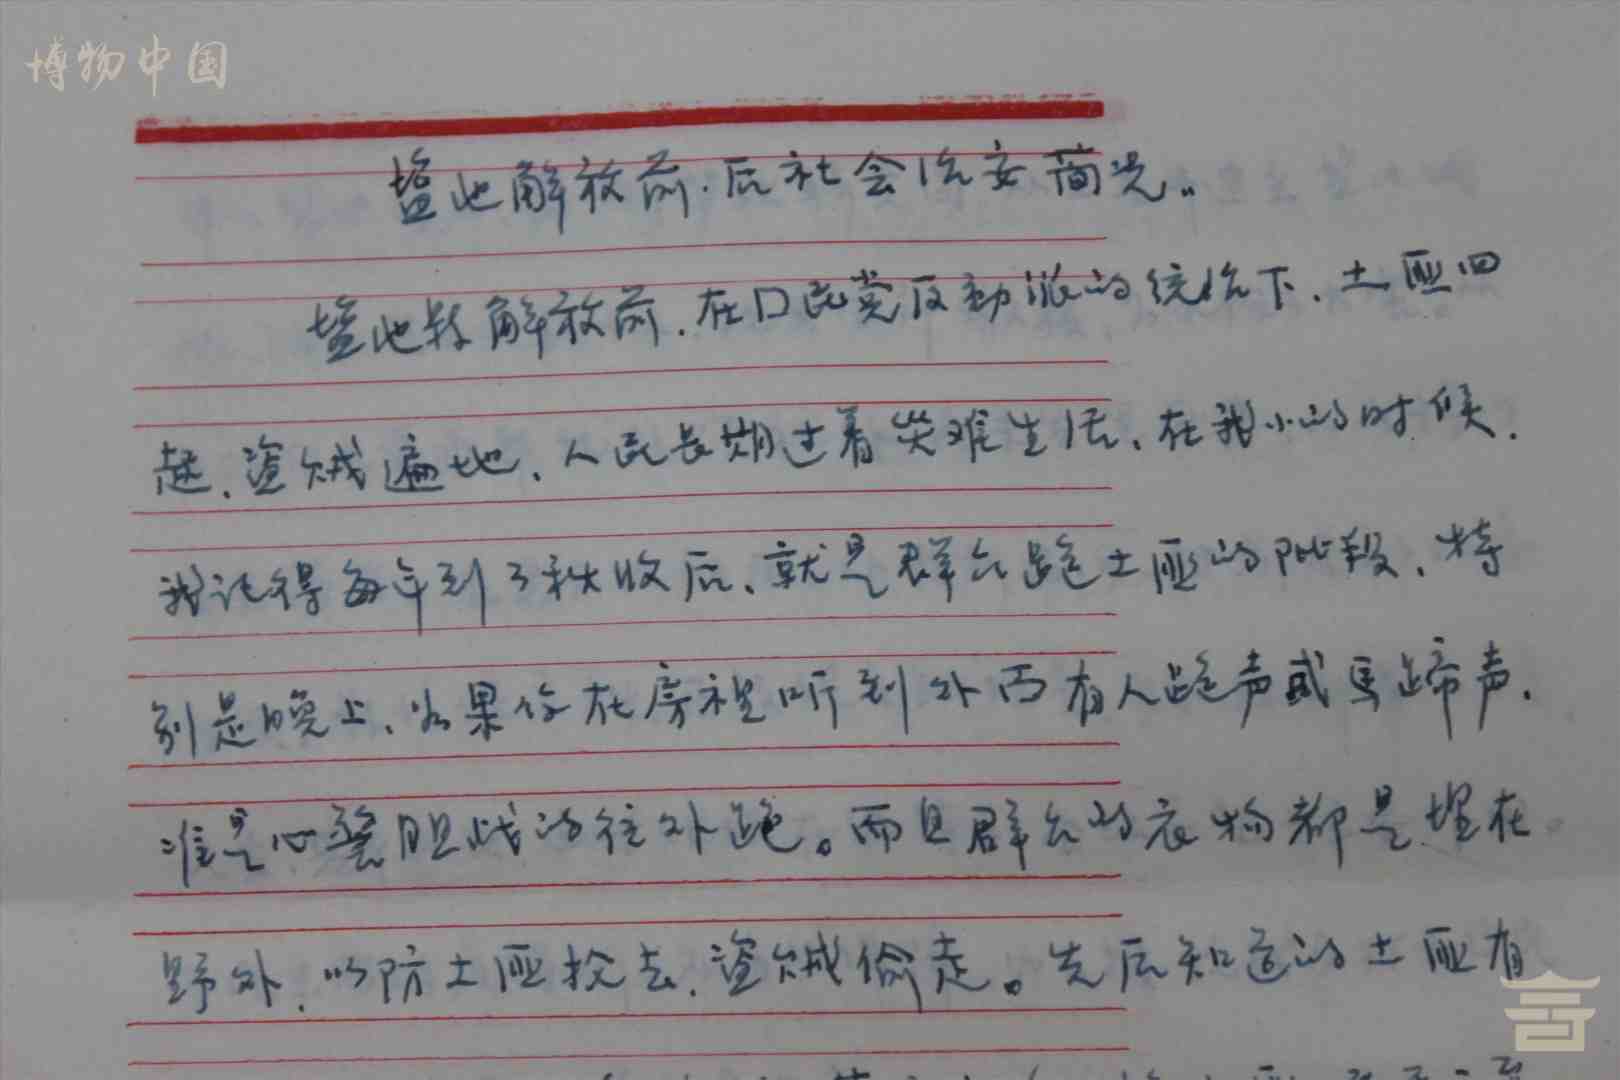 博物中国
盐池解放前.后社会治安简况。
盐池县解放前.在口民党反动派的统治下.土匪四
起.盗贼遍地.人民长期过着灾难生活.在我小的时候.
我记得每年到了秋收后.就是群众跑土匪的阶段.特
别是晚上.如果你在房里听到外面有人跑声或马蹄声.
准是心惊胆战的往外跑。而且群众的衣物都是埋在
野外.以防土匪抢去.盗贼偷走。先后知道的土匪有